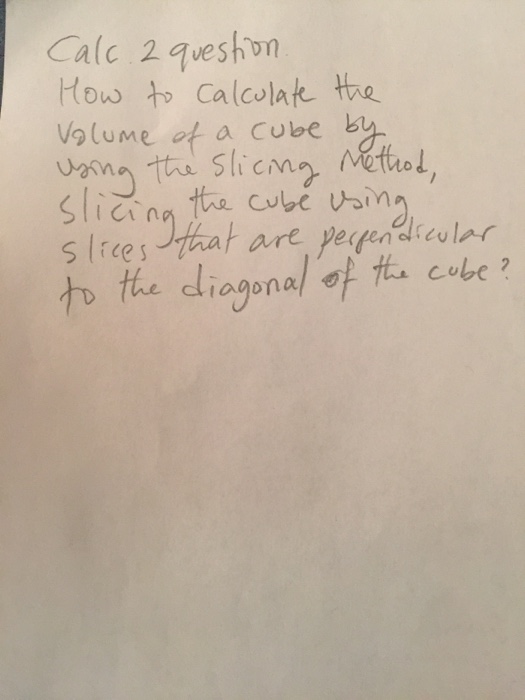 Calc 2 question
How to calculate the
Volume of a cube by
using the Slicing Method,
slicing the cube using
slices that are perpendicular
to the diagonal of the cube?